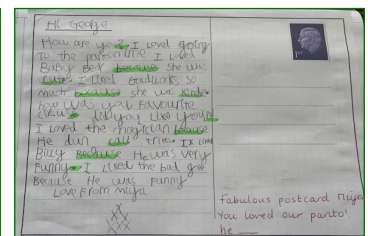 Hi George
How are you? I loved going
to the pantomime I loved
Baby Bear because she was
cute. I liked Goldilocks so
much because she was kind.
how was your favourite
did you like yours
I loved the magician because
He cool
Billy Because He was very
Funny. I liked the bad
Because He was Funny
Love From Miya
1st
Fabulous postcard Miya
You loved our panto!
he